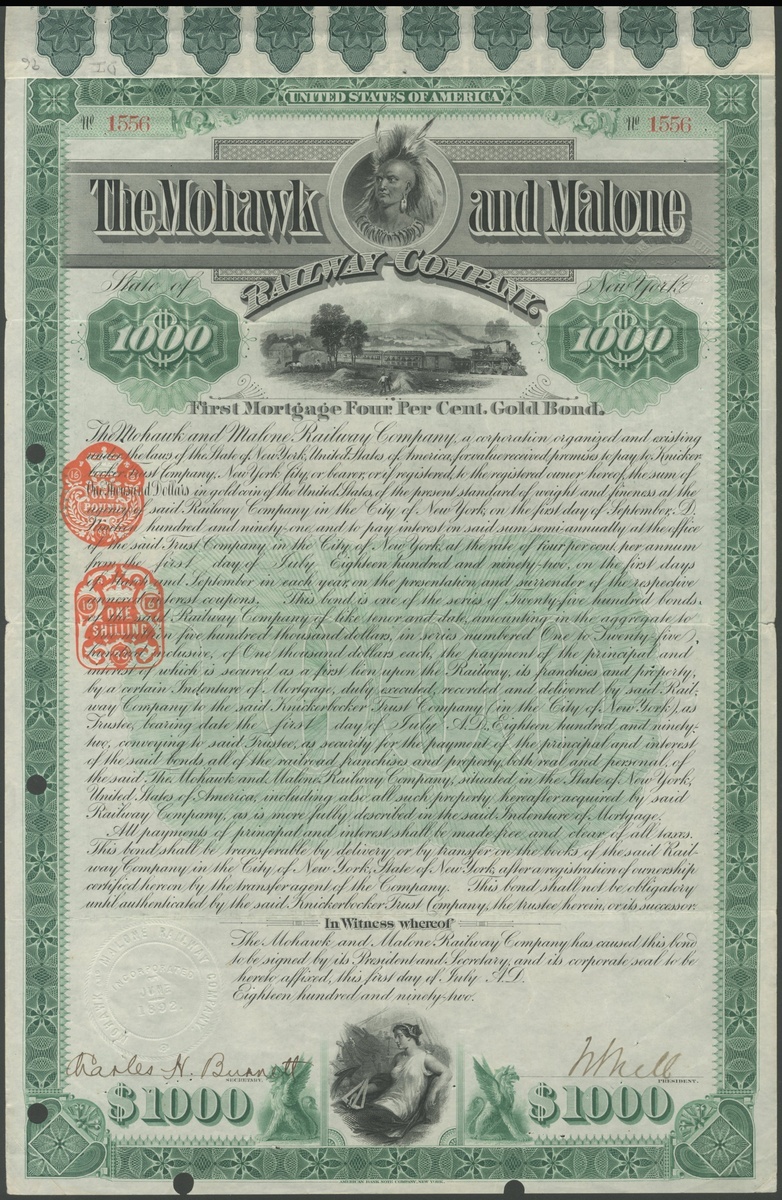 96 D1
UNITED STATES OF AMERICA
No 1556 No 1556
The Mohawk and Malone
RAILWAY COMPANY.
State of New York
$1000 $1000
First Mortgage Four Per Cent. Gold Bond.
The Mohawk and Malone Railway Company, a corporation organized and existing
under the laws of the State of New York, United States of America, for value received, promises to pay to Knicker-
Trust Company, New York City, or bearer, or if registered, to the registered owner hereof, the sum of
One Thousand Dollars in gold coin of the United States, of the present standard of weight and fineness at the
said Railway Company in the City of New York, on the first day of September, A.D.
hundred and ninety-one, and to pay interest on said sum semi-annually at the office
of the said Trust Company in the City of New York, at the rate of four per cent. per annum
from first day of July Eighteen hundred and ninety-two, on the first days
of March and September in each year, on the presentation and surrender of the respective
interest coupons. This bond is one of the series of Twenty-five hundred bonds,
of the said Railway Company of like tenor and date, amounting in the aggregate to
five hundred thousand dollars, in series numbered One to Twenty-five
hundred inclusive, of One thousand dollars each, the payment of the principal and
interest of which is secured as a first lien upon the Railway, its franchises and property,
by a certain Indenture of Mortgage, duly executed, recorded and delivered by said Rail-
way Company to the said Knickerbocker Trust Company (in the City of New York), as
Trustee, bearing date the first day of July A.D. Eighteen hundred and ninety-
two, conveying to said Trustee, as security for the payment of the principal and interest
of the said bonds, all of the railroad franchises and property, both real and personal, of
the said The Mohawk and Malone Railway Company, situated in the State of New York,
United States of America, including also all such property hereafter acquired by said
Railway Company, as is more fully described in the said Indenture of Mortgage.
All payments of principal and interest shall be made free and clear of all taxes.
This bond shall be transferable by delivery or by transfer on the books of the said Rail-
way Company in the City of New York, State of New York, after a registration of ownership
certified hereon by the transfer agent of the Company. This bond shall not be obligatory
until authenticated by the said Knickerbocker Trust Company, the trustee herein, or its successor.
ONE
SHILLING
In Witness whereof
The Mohawk and Malone Railway Company has caused this bond
to be signed by its President and Secretary, and its corporate seal to be
hereto affixed, this first day of July A.D.
Eighteen hundred and ninety-two.
MOHAWK RAILWAY COMPANY
JUNE
1892
Charles H. Burnett
SECRETARY. PRESIDENT.
$1000 $1000
AMERICAN BANK NOTE COMPANY, NEW YORK.